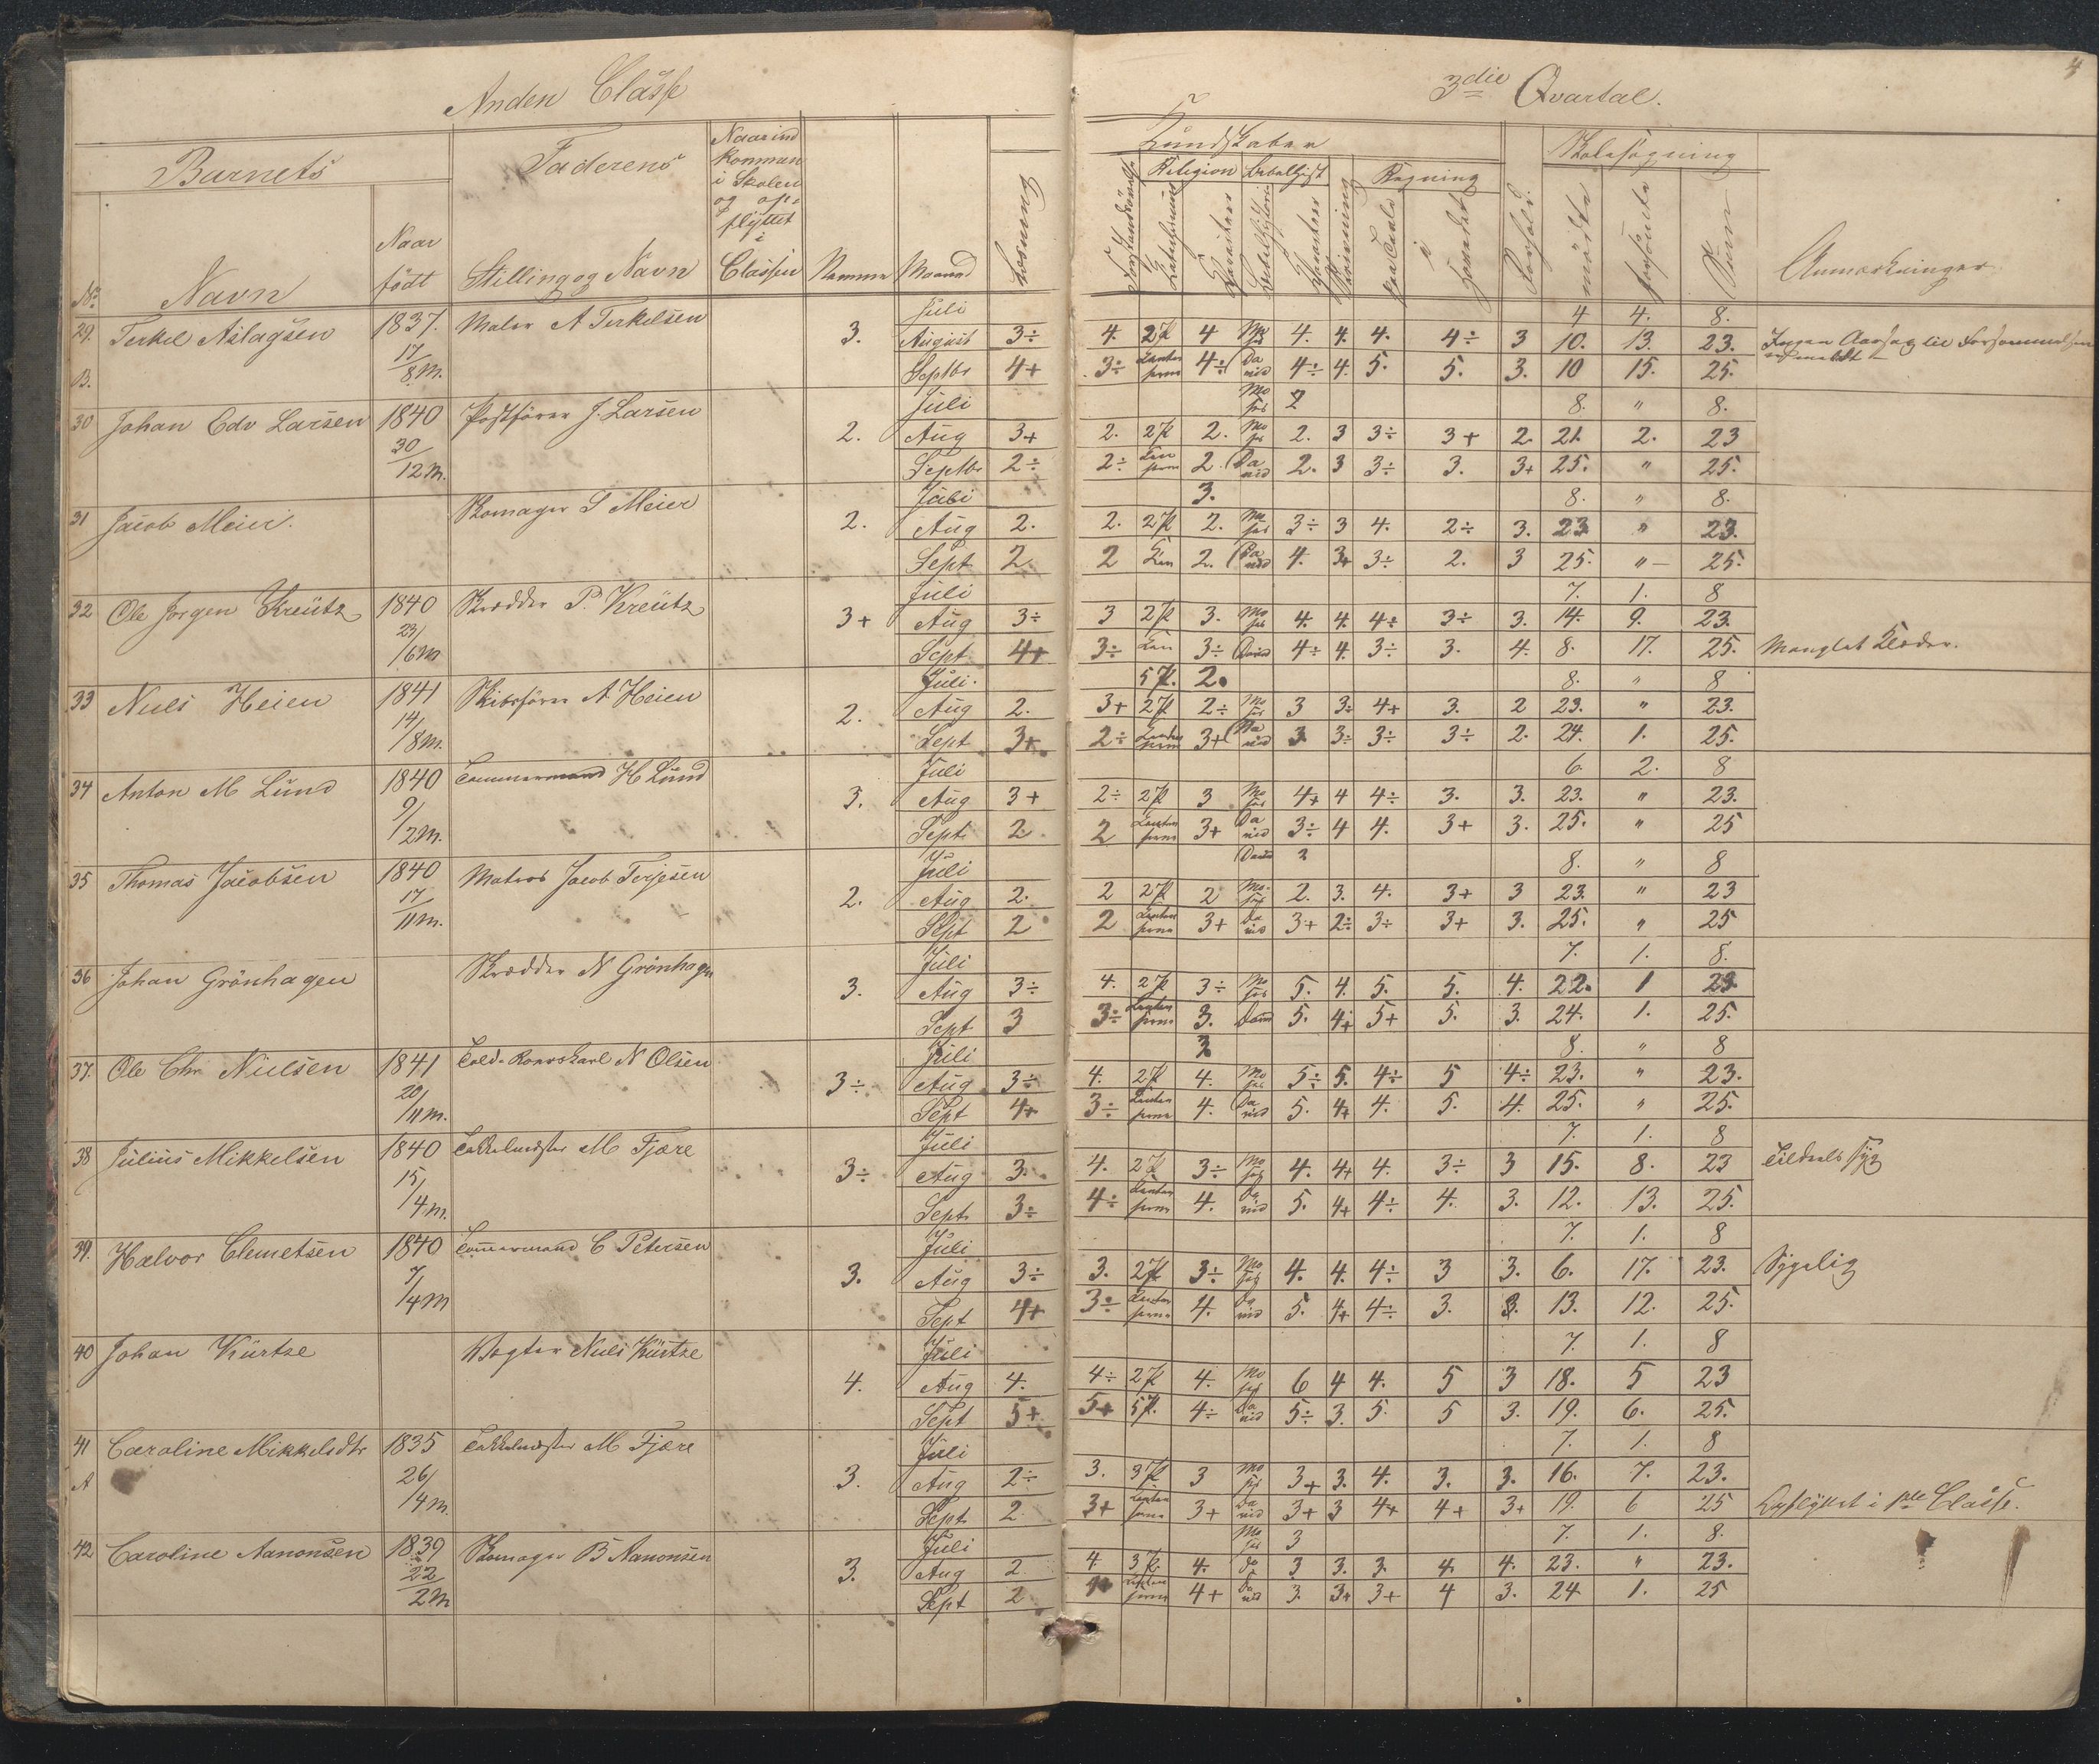 Anden Classe
3die Qvartal.
4
Barnets
Faderens
Naar ind
kommen
i Skolen
og op-
flyttet
i
Classen
Kundskaber
Skolesøgning
Religion
Regning
Læsning
No
Navn
Naar
født
Stilling og Navn
Maaned
Skrivning
paa Tavle
i
Hovedet
Forhold.
mødte
forsømte
Sum
Anmærkninger
29. Terkel Aslagsen 1837. Maler A Terkelsen Juli 4 4. 8.
17 3. August 3÷ 4. 27 4 Mo 4. 4. 4. 4÷ 3 10. 13. 23. Ingen Aarsag til Forsømmelsen
B. 8 M. Septbr 4+ 3÷ 4÷ Da 4÷ 4. 5. 5. 3. 10 15. 25.
30 Johan Edv Larsen 1840 Postfører J. Larsen Juli Mo 2 8. " 8.
30 2. Aug 3+ 2. 27 2. Mo 2. 3 3÷ 3+ 2. 21. 2. 23
12 M. Septbr 2÷ 2÷ 2. Da 2. 3 3÷ 3. 3+ 25. " 25.
31 Jacob Meier. Skomager S Meier Juli 3. 8. " 8.
2. Aug 2. 2. 27 2. Mo 3÷ 3 4. 2÷ 3. 23 " 23.
Sept 2 2 2. Da 4. 3+ 3÷ 2. 3 25. " 25.
32 Ole Jørgen Kreutz 1840 Skrædder P. Kreutz Juli 7. 1. 8
23 3+ Aug 3÷ 3 27 3. Mo 4. 4. 4÷ 3÷ 3. 14. 9. 23.
6 M Sept 4+ 3÷ 3÷ David 4÷ 4. 3÷ 3. 4. 8. 17. 25. Manglet Klæder.
33 Niels Heien 1841 Skibsfører A Heien Juli 57. 2. 8. " 8
14 2. Aug 2. 3+ 27 2÷ Mo 3 3÷ 4+ 3. 2 23. " 23.
8 M. Sept 3+ 2÷ 3+ Da 3 3÷ 3÷ 3÷ 2. 24. 1. 25.
34 Anton M Lund 1840 Tømmermand H Lund Juli 6 2. 8
9 3. Aug 3+ 2÷ 27 3 Mo 4+ 4 4÷ 3. 3. 23. " 23.
2 M. Sept 2 2 3+ Da 3÷ 4 4. 3+ 3. 25. " 25
35 Thomas Jacobsen 1840 Matros Jacob Terjesen Juli 8. " 8
17 2. Aug 2. 2 27 2 Mo 2. 3. 4. 3+ 3 23. " 23
11 M. Sept 2 2 3+ Da 3+ 2÷ 3÷ 3+ 3. 25. " 25
36 Johan Grönhagen Skrædder N Grönhagen Juli 7. 1. 8.
3. Aug 3÷ 4. 27 3÷ Mo 5. 4. 5. 5. 4. 22. 1 23.
Sept 3 3÷ 3. David 5. 4+ 5+ 5. 3. 24. 1. 25.
37. Ole Chr Nielsen 1841 Told-Roerskarl N Olsen Juli 8. " 8
20 3÷ Aug 3÷ 4. 27 4. Mo 5÷ 5. 4÷ 5 4÷ 23. " 23.
11 M. Sept 4+ 3÷ 4. Da 5. 4+ 4. 5. 4. 25. " 25.
38 Julius Mikkelsen 1840 Takkelmester M Fjære Juli 7. 1. 8
15 3÷ Aug 3. 4. 27 3÷ Mo 4. 4+ 4. 3÷ 3 15. 8. 23 Tildeels syg
4 M. Sept. 3÷ 4÷ 4. Da 5. 4+ 4÷ 4. 3. 12. 13. 25.
39. Halvor Clemetsen 1840 Tømmermand C Petersen Juli 7. 1. 8
7 3. Aug 3÷ 3. 27 3÷ Mo 4. 4. 4÷ 3 3. 6. 17. 23. Sygelig
4 M Sept 4+ 3÷ 4. Da 5. 4+ 4÷ 3. 3. 13. 12. 25.
40 Johan Kürtze Vægter Niels Kürtze Juli 7. 1. 8
4. Aug 4. 4÷ 27 4. Mo 6 4 4. 5 3 18. 5 23
Sept 5+ 5+ 57. 4÷ Da 5÷ 3. 5. 5 3. 19. 6. 25.
41 Caroline Mikkelsdtr 1835 Takkelmester M Fjære Juli 7. 1. 8
A 26 3. Aug 2÷ 3. 37 3 Mo 3+ 3. 4. 3. 3. 16. 7. 23.
4 M. Sept. 2. 3+ 3+ Da 3+ 3 4+ 4+ 3+ 19. 6 25 Opflyttet i 1ste Classe.
42 Caroline Aanonsen 1839 Skomager B Aanonsen Juli Mo 3 7. 1. 8.
22 3. Aug 2. 4 37. 4. do 3 3. 3. 4. 4. 23. " 23.
2 M Sept 2 4+ Da 3. 3+ 3+ 4 3. 24 1. 25